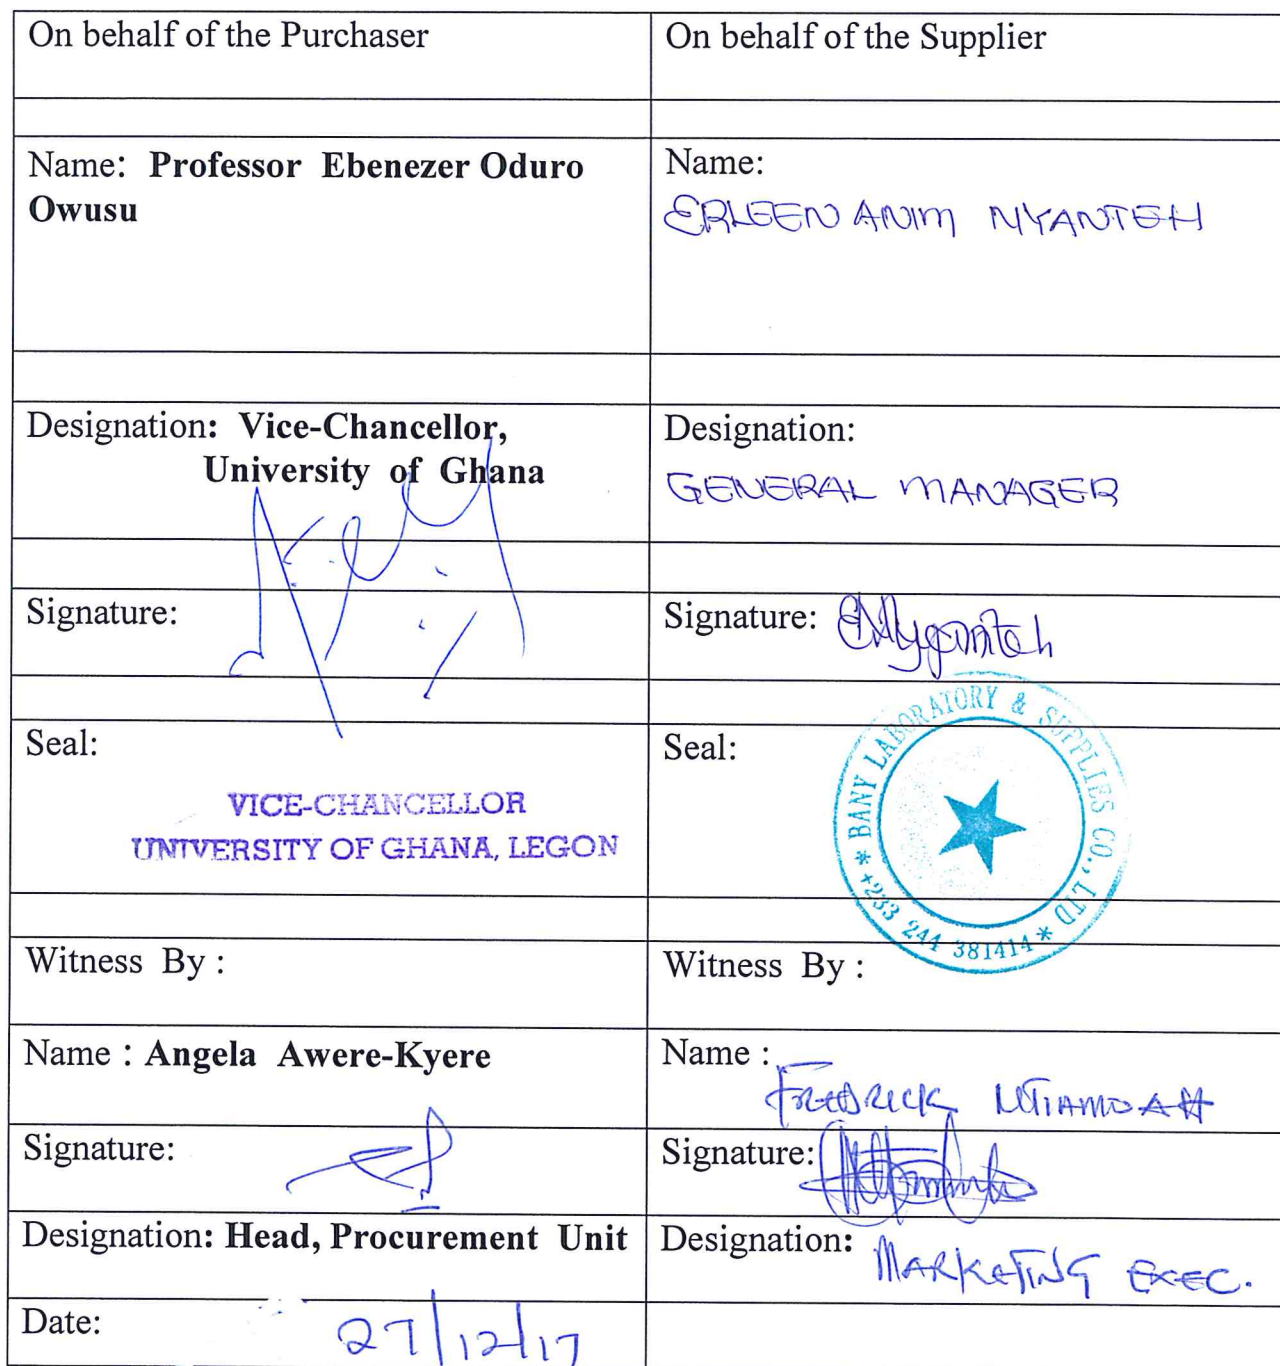 On behalf of the Purchaser
On behalf of the Supplier
Name: Professor Ebenezer Oduro
Owusu
Name:
ERLEEN ANIM NYANTEH
Designation: Vice-Chancellor,
University of Ghana
Designation:
GENERAL MANAGER
Signature:
Signature: ENyanteh
Seal:
VICE-CHANCELLOR
UNIVERSITY OF GHANA, LEGON
Seal:
* BANY LABORATORY & SUPPLIES CO., LTD *
+233 244 381414
Witness By :
Witness By :
Name : Angela Awere-Kyere
Name :
FREDRICK NTIAMOAH
Signature:
Signature:
Designation: Head, Procurement Unit
Designation: MARKETING EXEC.
Date: 27/12/17